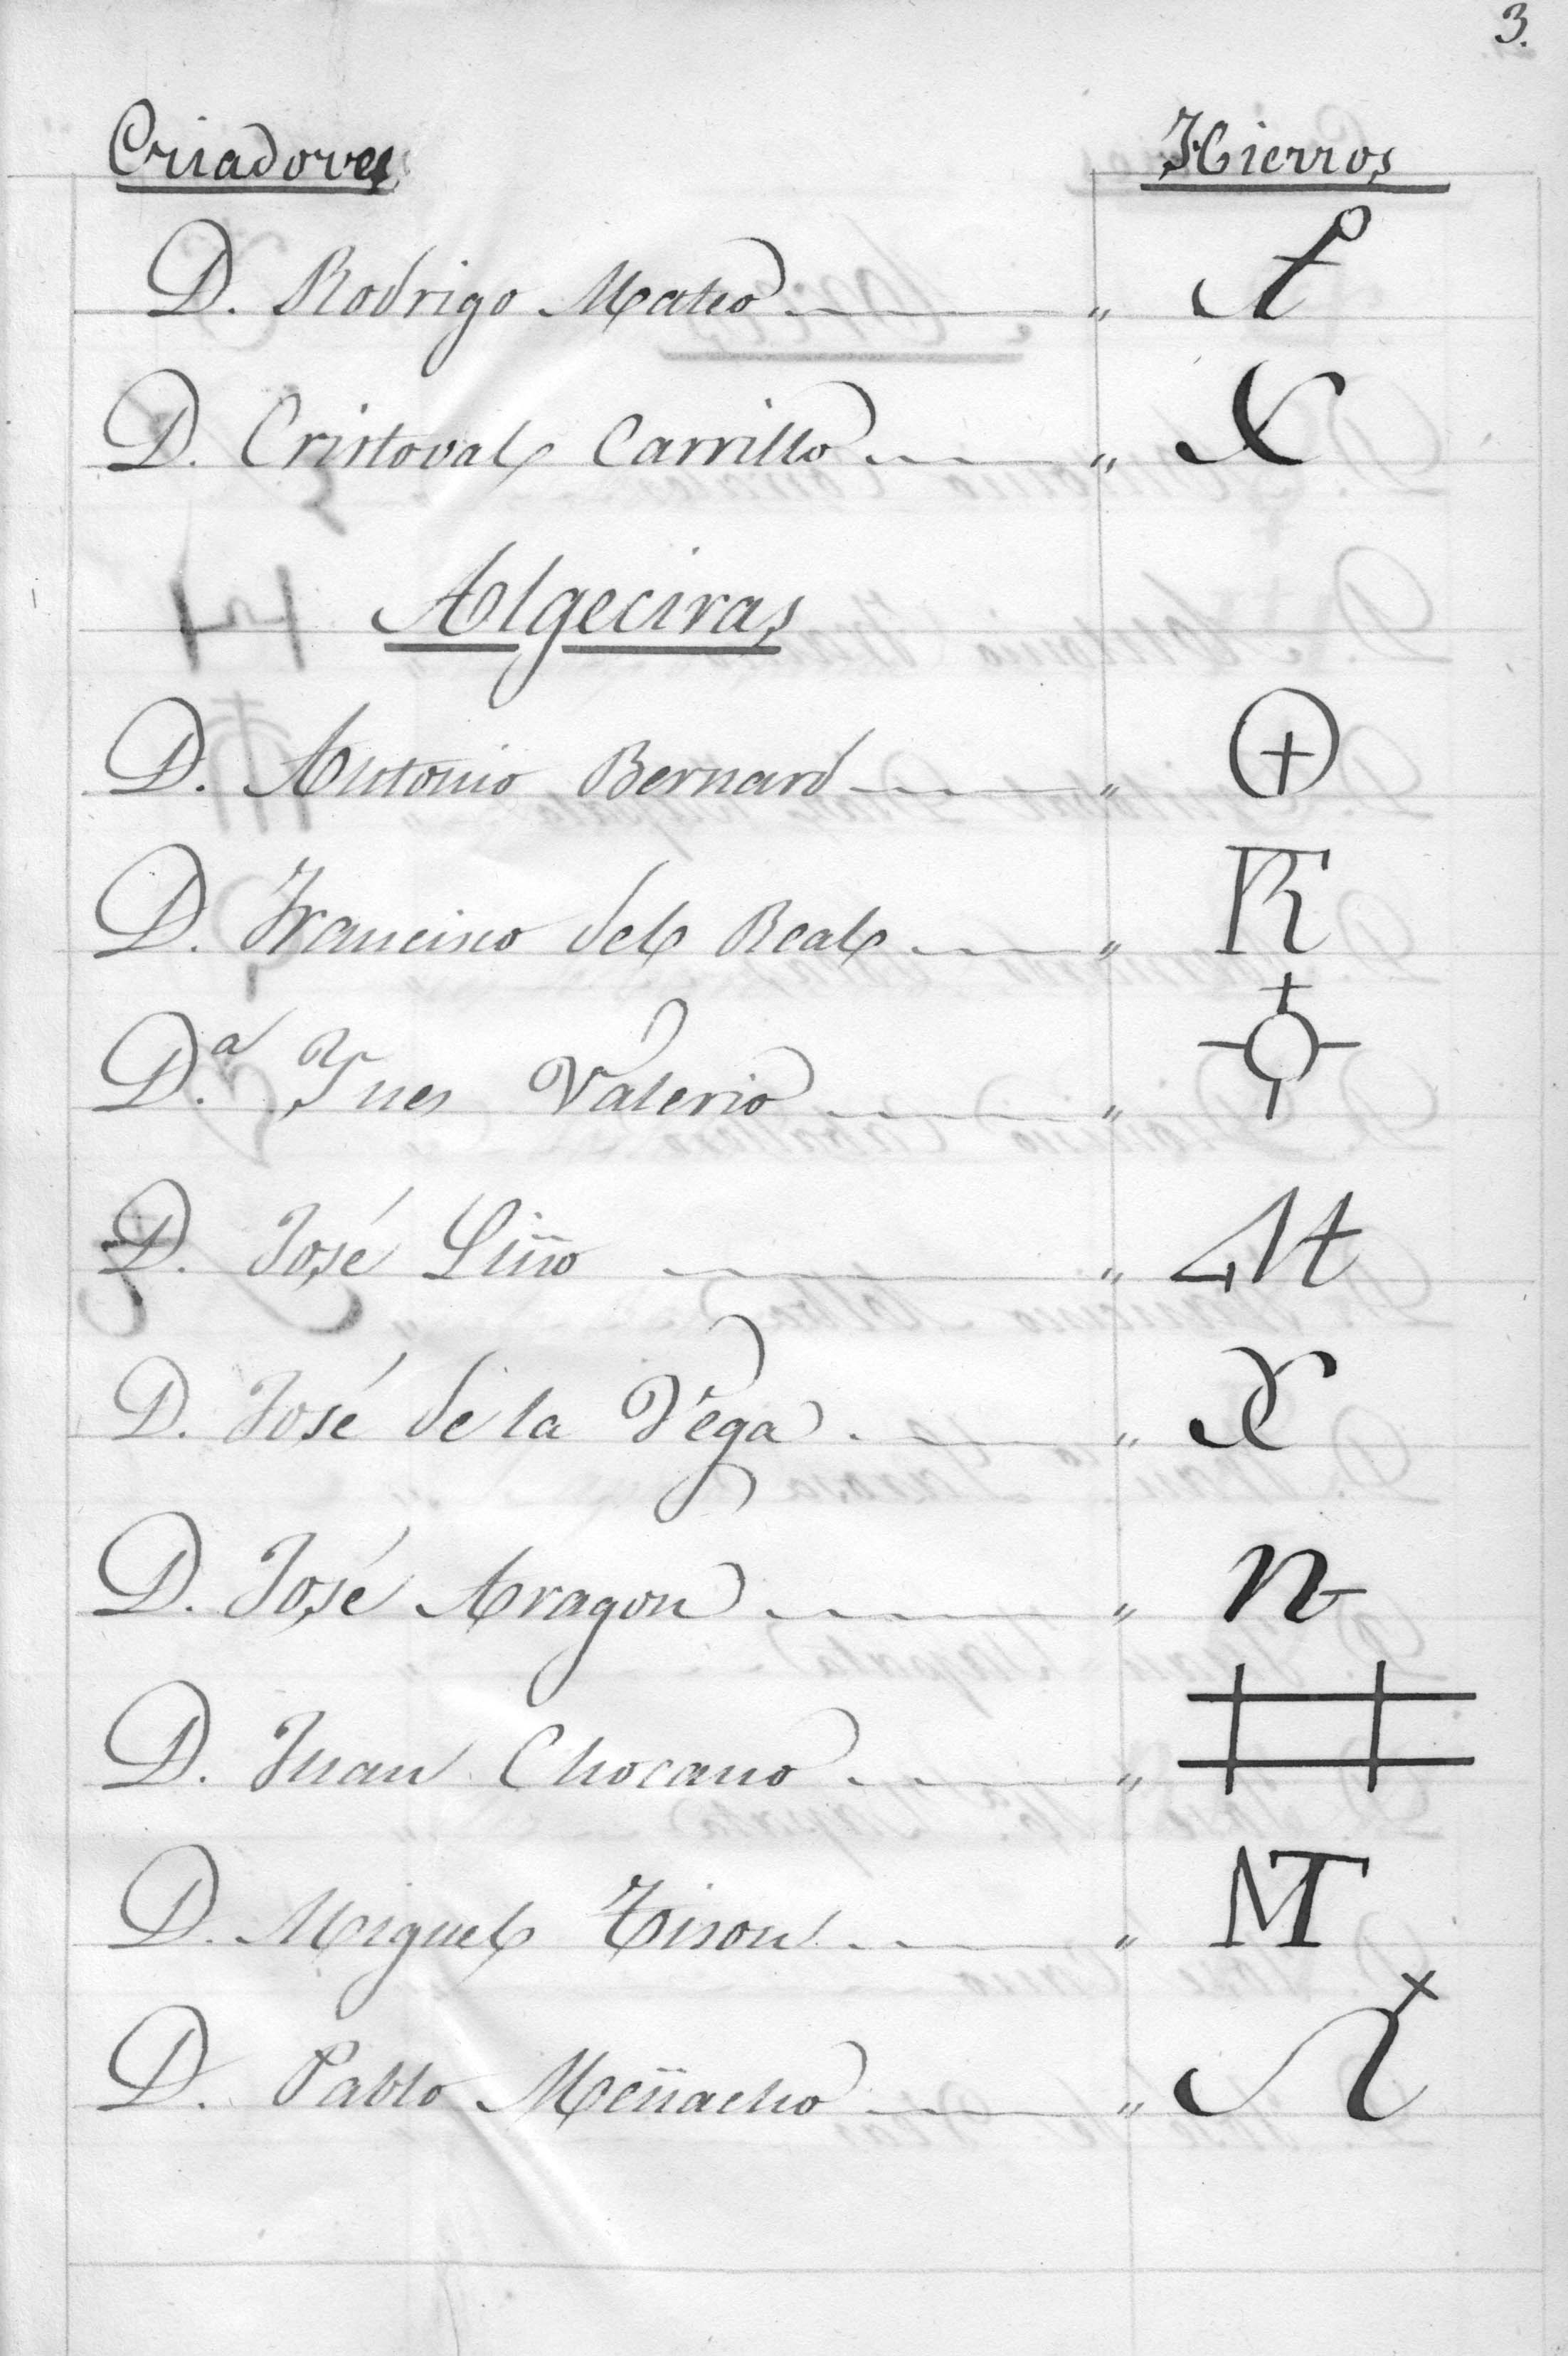 3.
Criadores Hierros
D. Rodrigo Mateo "
D. Cristoval Carrillo "
Algeciras
D. Antonio Bernard "
D. Francisco del Real " R
D.ª Ynes Valerio "
D. José Liño "
D. José de la Vega "
D. José Aragon "
D. Juan Chocano "
D. Miguel Tison " MT
D. Pablo Meñacho "